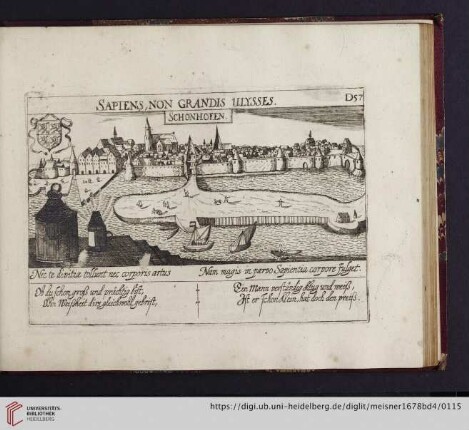 SAPIENS, NON GRANDIS ULYSSES.
D57
SCHONHOFEN.
Nec te divitiæ tollunt nec corporis artus
Nam magis in parvo Sapientia corpore fulget.
Ob du schon groß und prächtig bist,
Dein Weißheit dir gleichwol gebrist,
Ein Mann verständig und weiß,
Ist er schon klein, hat doch den preiß.
UNIVERSITÄTS-
BIBLIOTHEK
HEIDELBERG
https://digi.ub.uni-heidelberg.de/diglit/meisner1678bd4/0115